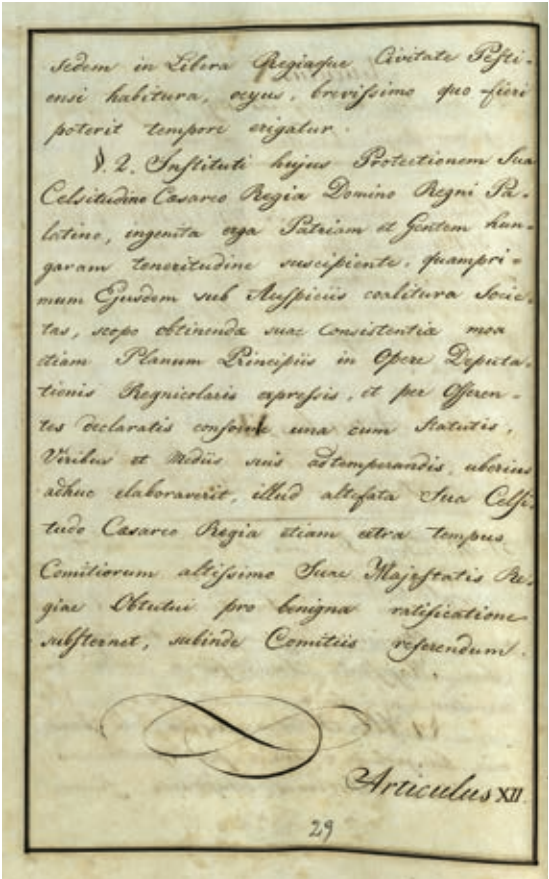 sedem in Libera Regiaque Civitate Pesti-
ensi habitura, ocyus, brevissimo quo fieri
poterit tempore erigatur.
§. 2. Instituti hujus Protectionem Sua
Celsitudine Cæsareo Regia Domino Regni Pa-
latino, ingenita erga Patriam et Gentem hun-
garam teneritudine suscipiente, quampri-
mum Ejusdem sub Auspiciis coalitura Socie-
tas, scopo obtinendæ suae Consistentiæ mox
etiam Planum Principiis in Opere Deputa-
tionis Regnicolaris expressis, et per Offeren-
tes declaratis conforme una cum Statutis,
Viribus et Mediis suis adtemperandis, uberius
adhuc elaboraverit, illud altefata Sua Celsi-
tudo Cæsareo Regia etiam extra tempus
Comitiorum altissimo Suae Majestatis Re-
giae Obtutui pro benigna ratificatione
substernet, subinde Comitiis referendum.
Articulus XII.
29